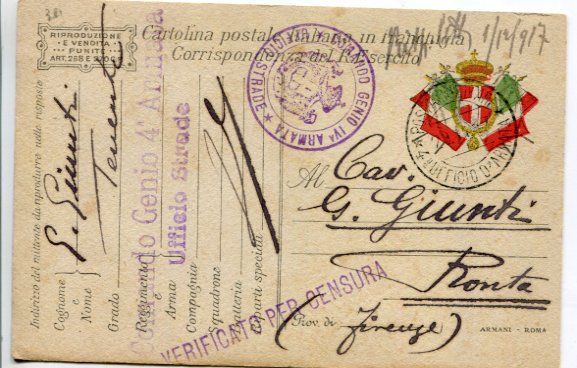 RIPRODUZIONE
E VENDITA
PUNITE
ART. 268 E 270 C.P.
Cartolina postale italiana in franchigia
Corrispondenza del R. Esercito
1/12/917
COMANDO GENIO IVª ARMATA
UFFICIO STRADE
UFFICIO D'ARM
Al Cav.
G. Giunti
Ronta
(Prov. di Firenze)
ARMANI - ROMA
VERIFICATO PER CENSURA
Indirizzo del mittente da riprodurre nelle risposte
Cognome e Nome
G. Giunti
Grado
Tenente
Reggimento
e
Arma
Compagnia
Squadrone
Batteria
Riparti speciali
Comando Genio 4ª Armata
Ufficio Strade